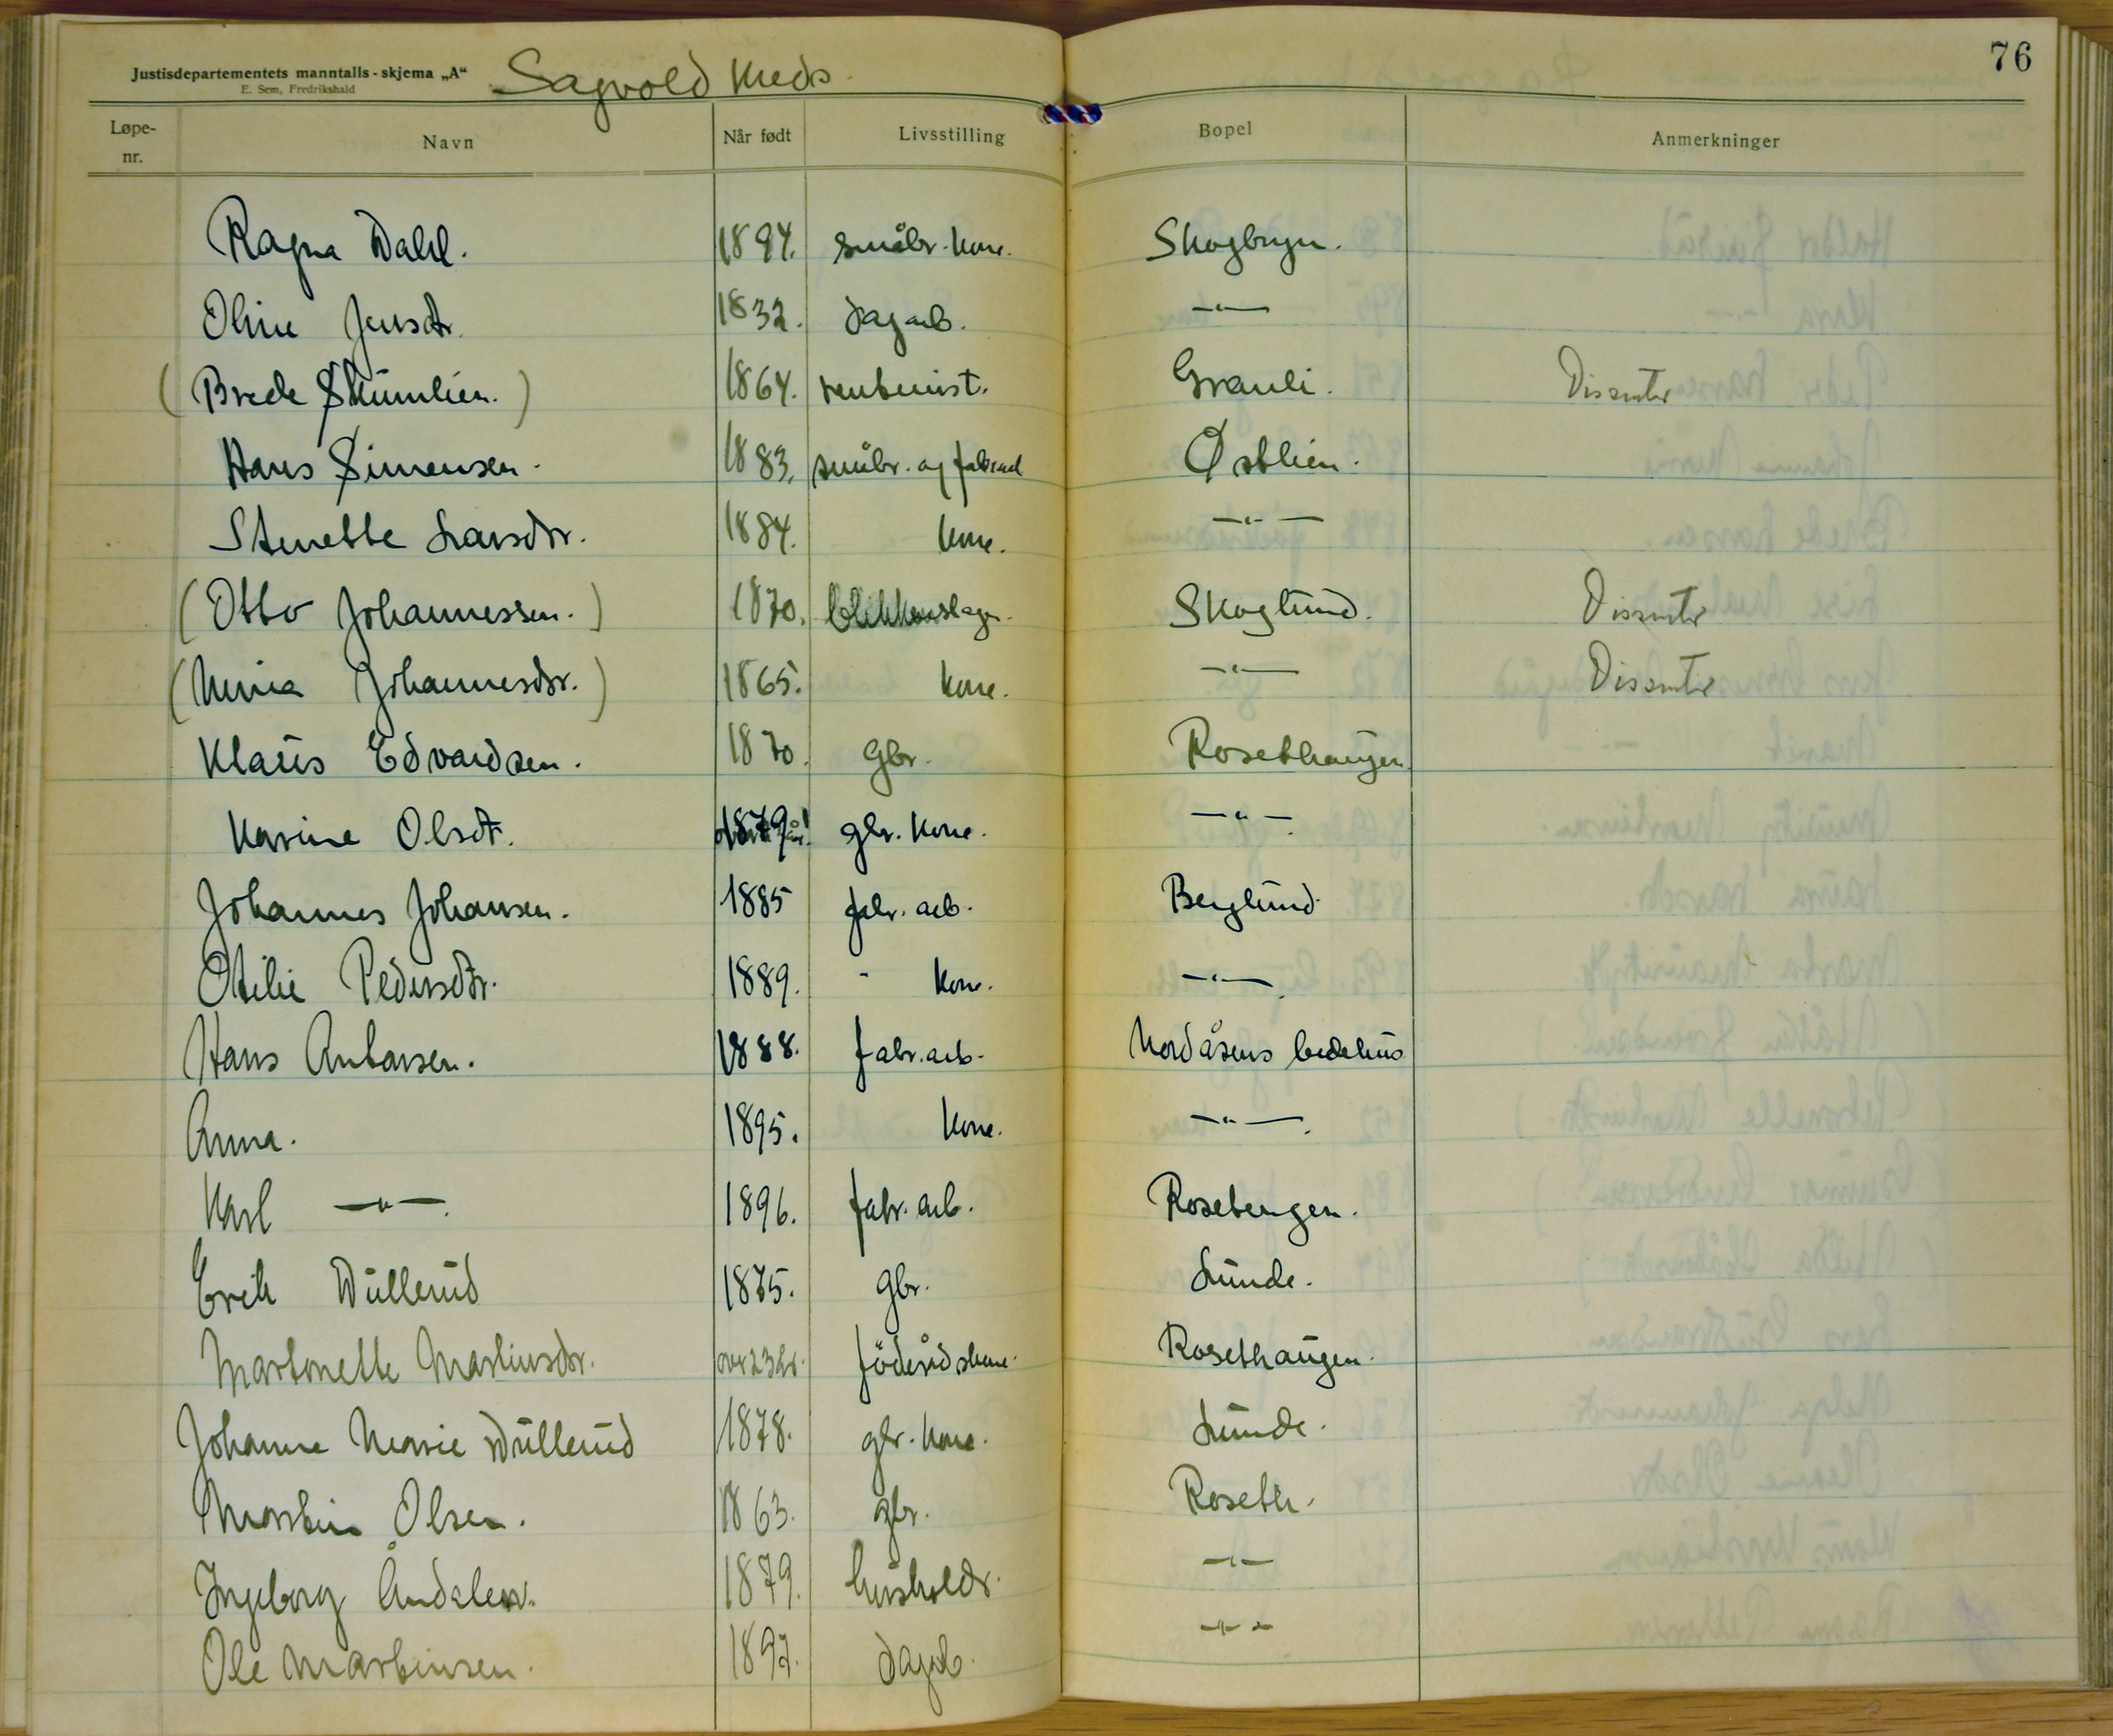 76
Justisdepartementets manntalls-skjema „A“ Sagvold Kreds
E. Sem, Fredrikshald
Løpe-nr. Navn Når født Livsstilling Bopel Anmerkninger
Ragna Dahl. 1894. småbr. kone. Skogbryn.
Oline Jensdtr. 1832. dagarb. —"—
(Brede Skumlien.) 1864. Granli. Dissenter
Hans Simensen. 1883. småbr. og Østlien.
Stenette Larsdtr. 1884. kone. —"—
(Otto Johannessen.) 1870. blikkenslager. Skoglund. Dissenter
(Mina Johannesdtr.) 1865. kone. —"— Dissenter
Klaus Edvardsen. 1870. gbr. Rosethaugen
Karine Olsdtr. 1879 gbr. kone. —"—
Johannes Johansen. 1885 fabr. arb. Berglund
Otilie Pedersdtr. 1889. " kone. —"—
Hans Antonsen. 1888. fabr. arb. Nordåsens bedehus
Anna. 1895. kone. —"—.
Karl —"—. 1896. fabr. arb. Rosetengen.
Erik Dullerud 1875. gbr. Lunde.
Martonette Martinsdtr. over 23 år. føderådskone. Rosethaugen.
Johanne Marie Dullerud 1878. gbr. kone. Lunde.
Martin Olsen. 1863. gbr. Roseth.
Ingeborg 1879. husholdr. —"—
Ole Martinsen. 1897. dagarb. —"—